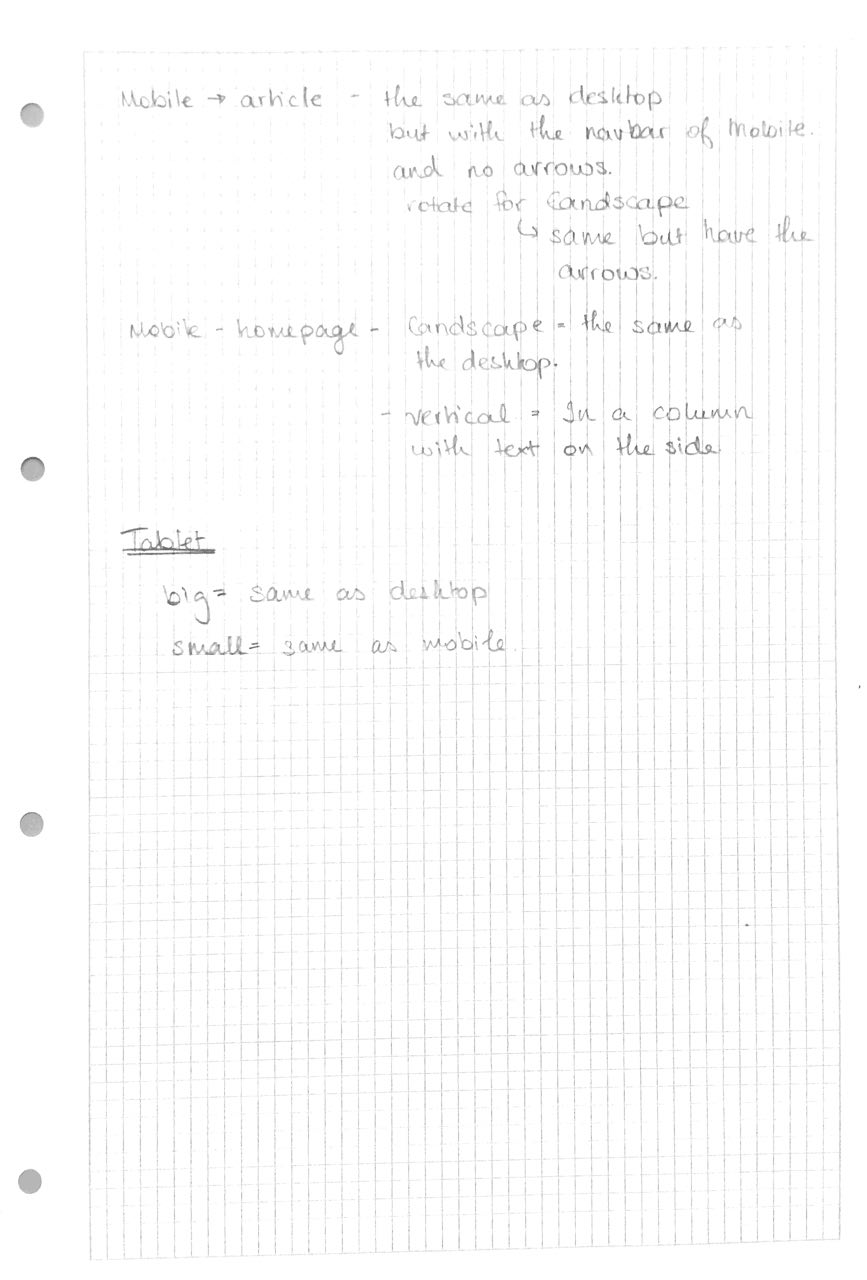 Mobile → article - the same as desktop
but with the navbar of mobile.
and no arrows.
rotate for landscape
↳ same but have the
arrows.
Mobile - homepage - landscape = the same as
the desktop.
- vertical = In a column
with text on the side
Tablet
big = same as desktop
small = same as mobile